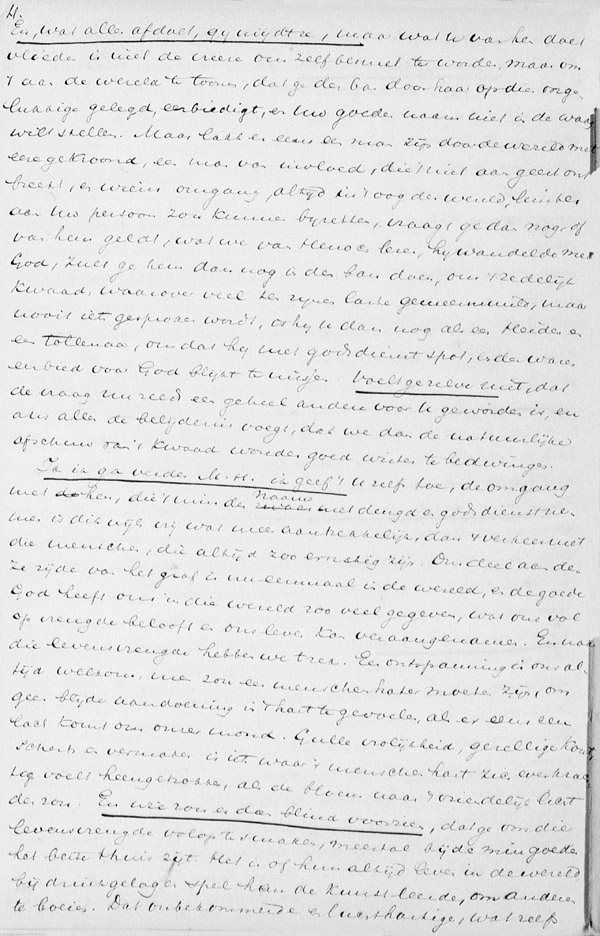 4.
En, wat alles afdoet, gy mydt ze, maar wat u van hen doet
vlieden is niet de vrees om zelf besmet te worden, maar om
't aan de wereld te toonen, dat ge den ban door haar op die onge-
lukkige gelegd, eerbiedigt, en uw goeden naam niet in de waag
wilt stellen. Maar laat er eens een man zijn door de wereld met
eere gekroond, een man van invloed, die 't niet aan geest ont-
breekt, en wiens omgang, altyd in 't oog der wereld, luister
aan uw persoon zou kunnen byzetten, vraagt ge dan nog of
van hem geldt, wat we van Henoch lezen, hy wandelde met
God, zult ge hem dan nog in den ban doen, om 't zedelijk
kwaad, waarover veel ten zynen laste gemompeld, maar
nooit iets gesproken wordt, is hy u dan nog als een Heiden en
een tollenaar, omdat hy met godsdienst spot, en den waren
eerbied voor God blykt te missen. Voelt ge zelve niet, dat
de vraag nu reeds een geheel andere voor u geworden is, en
ons allen de belydenis voegt, dat we dan de natuurlijke
afschuw van 't kwaad wonder goed weten te bedwingen.
Ja ik ga verder M. H. ik geef 't u zelfs toe, de omgang
met hen, die 't min der naauw met deugd en godsdienst ne-
men is dikwijls vry wat meer aantrekkelijk, dan 't verkeer met
die menschen, die altyd zoo ernstig zyn. Ons deel aan deze
zyde van het graf is nu eenmaal in de wereld, en de goede
God heeft ons in die wereld zoo veel gegeven, wat ons vol-
op vreugde belooft en ons leven kan veraangenamen. En naar
die levensvreugde hebben we trek. Een ontspanning is ons al-
tyd welkom, men zou een menschenhater moeten zyn, om
geen blyde aandoening in 't hart te gevoelen, als er eens een
lach komt om onzen mond. Gulle vrolijkheid, gezellige kout,
scherts en vermaken is iets waar 't menschenhart zich even krach-
tig voelt heengetrokken, als de bloem naar 't vriendelijk licht
der zon. En wie zou er dan blind voor zijn, dat ge om die
levensvreugde volop te smaken, meestal by de min goeden
het beste thuis zyt. Het is of hun altyd leven in de wereld
by drinkgelagen en spel hen de kunst leerde, om anderen
te boeien. Dat onbekommerde en luchthartige, wat zelfs